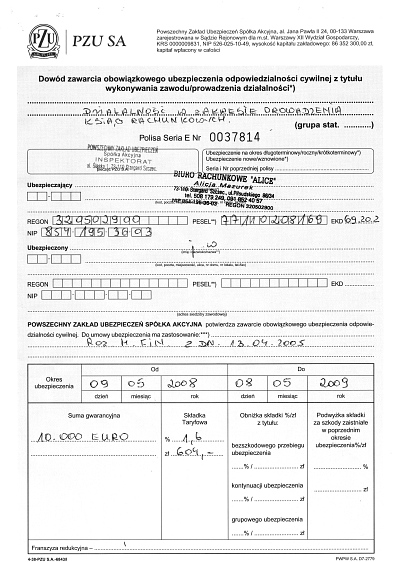 PZU
PZU SA
Powszechny Zakład Ubezpieczeń Spółka Akcyjna, al. Jana Pawła II 24, 00-133 Warszawa
zarejestrowana w Sądzie Rejonowym dla m.st. Warszawy XII Wydział Gospodarczy,
KRS 0000009831, NIP 526-025-10-49, wysokość kapitału zakładowego: 86 352 300,00 zł,
kapitał wpłacony w całości
Dowód zawarcia obowiązkowego ubezpieczenia odpowiedzialności cywilnej z tytułu
wykonywania zawodu/prowadzenia działalności*)
DZIAŁALNOŚĆ W ZAKRESIE PROWADZENIA
KSIĄG RACHUNKOWYCH.
(grupa stat. ...........)
Polisa Seria E Nr 0037814
POWSZECHNY ZAKŁAD UBEZPIECZEŃ
Spółka Akcyjna
INSPEKTORAT
Ubezpieczenie na okres długoterminowy/roczny/krótkoterminowy*)
Ubezpieczenie nowe/wznowione*)
Seria i Nr poprzedniej polisy
BIURO RACHUNKOWE "ALICE"
Alicja Mazurek
Ubezpieczający
REGON PESEL**) EKD 69.20.Z
NIP
Ubezpieczony
REGON PESEL**) EKD
NIP
(adres siedziby zawodowej)
POWSZECHNY ZAKŁAD UBEZPIECZEŃ SPÓŁKA AKCYJNA potwierdza zawarcie obowiązkowego ubezpieczenia odpowie-
dzialności cywilnej. Do umowy ubezpieczenia ma zastosowanie:***)
ROZ. M. FIN. Z DN. 13.04.2005
Od Do
Okres
ubezpieczenia
09 05 2008 08 05 2009
dzień miesiąc rok dzień miesiąc rok
Suma gwarancyjna
Składka
Taryfowa
Obniżka składki %/zł
z tytułu:
Podwyżka składki
za szkody zaistniałe
w poprzednim
okresie
ubezpieczenia%/zł
10.000 EURO
% 1,6
zł 604,-
bezszkodowego przebiegu
ubezpieczenia
% / zł
%
kontynuacji ubezpieczenia
% / zł
zł
grupowego ubezpieczenia
% / zł
Franszyza redukcyjna –
PWPW S.A. D7-2779